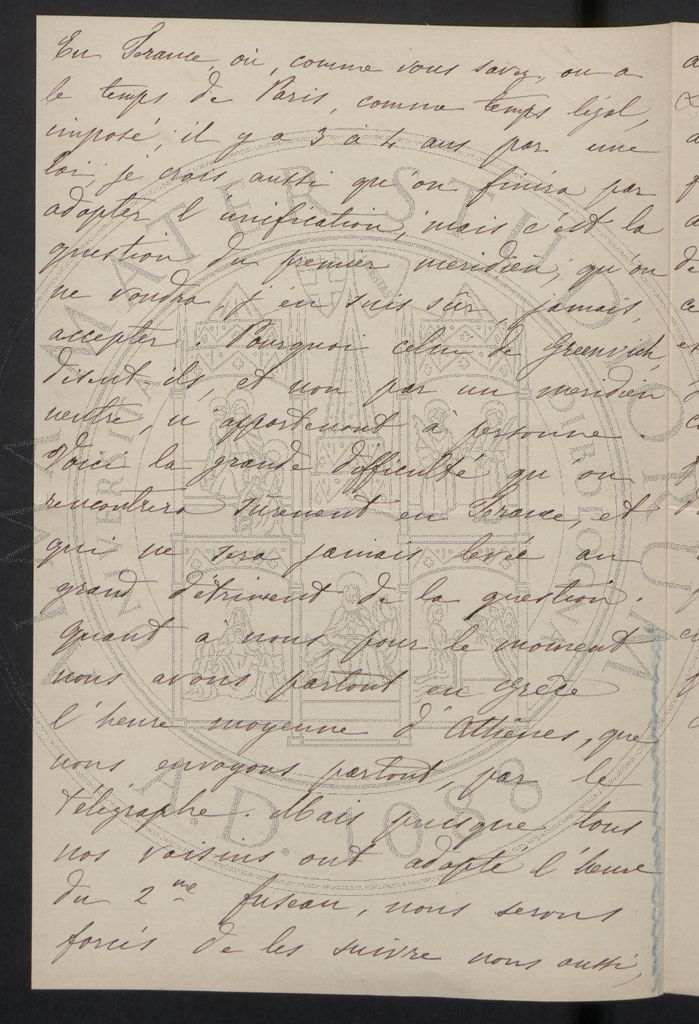 En France, où, comme vous savez, on a
le temps de Paris, comme temps légal,
imposé, il y a 3 à 4 ans par une
loi, je crois aussi qu'on finira par
adopter l'unification, mais c'est la
question du premier meridien, qu'on
ne voudra, j'en suis sûr, jamais,
accepter. Pourquoi celui de Greenwich,
disent-ils, et non par un meridien
neutre, n'appartenant à personne.
Voici la grande difficulté qu'on
rencontrera sûrement en France, et
qui ne sera jamais levée au
grand détriment de la question.
Quant à nous, pour le moment
nous avons partout en Grèce
l'heure moyenne d'Athènes, que
nous envoyons partout, par le
télégraphe. Mais puisque tous
nos voisins ont adopté l'heure
du 2me fuseau, nous serons
forcés de les suivre nous aussi,
ALMA MATER STUDIORUM
A.D. 1088